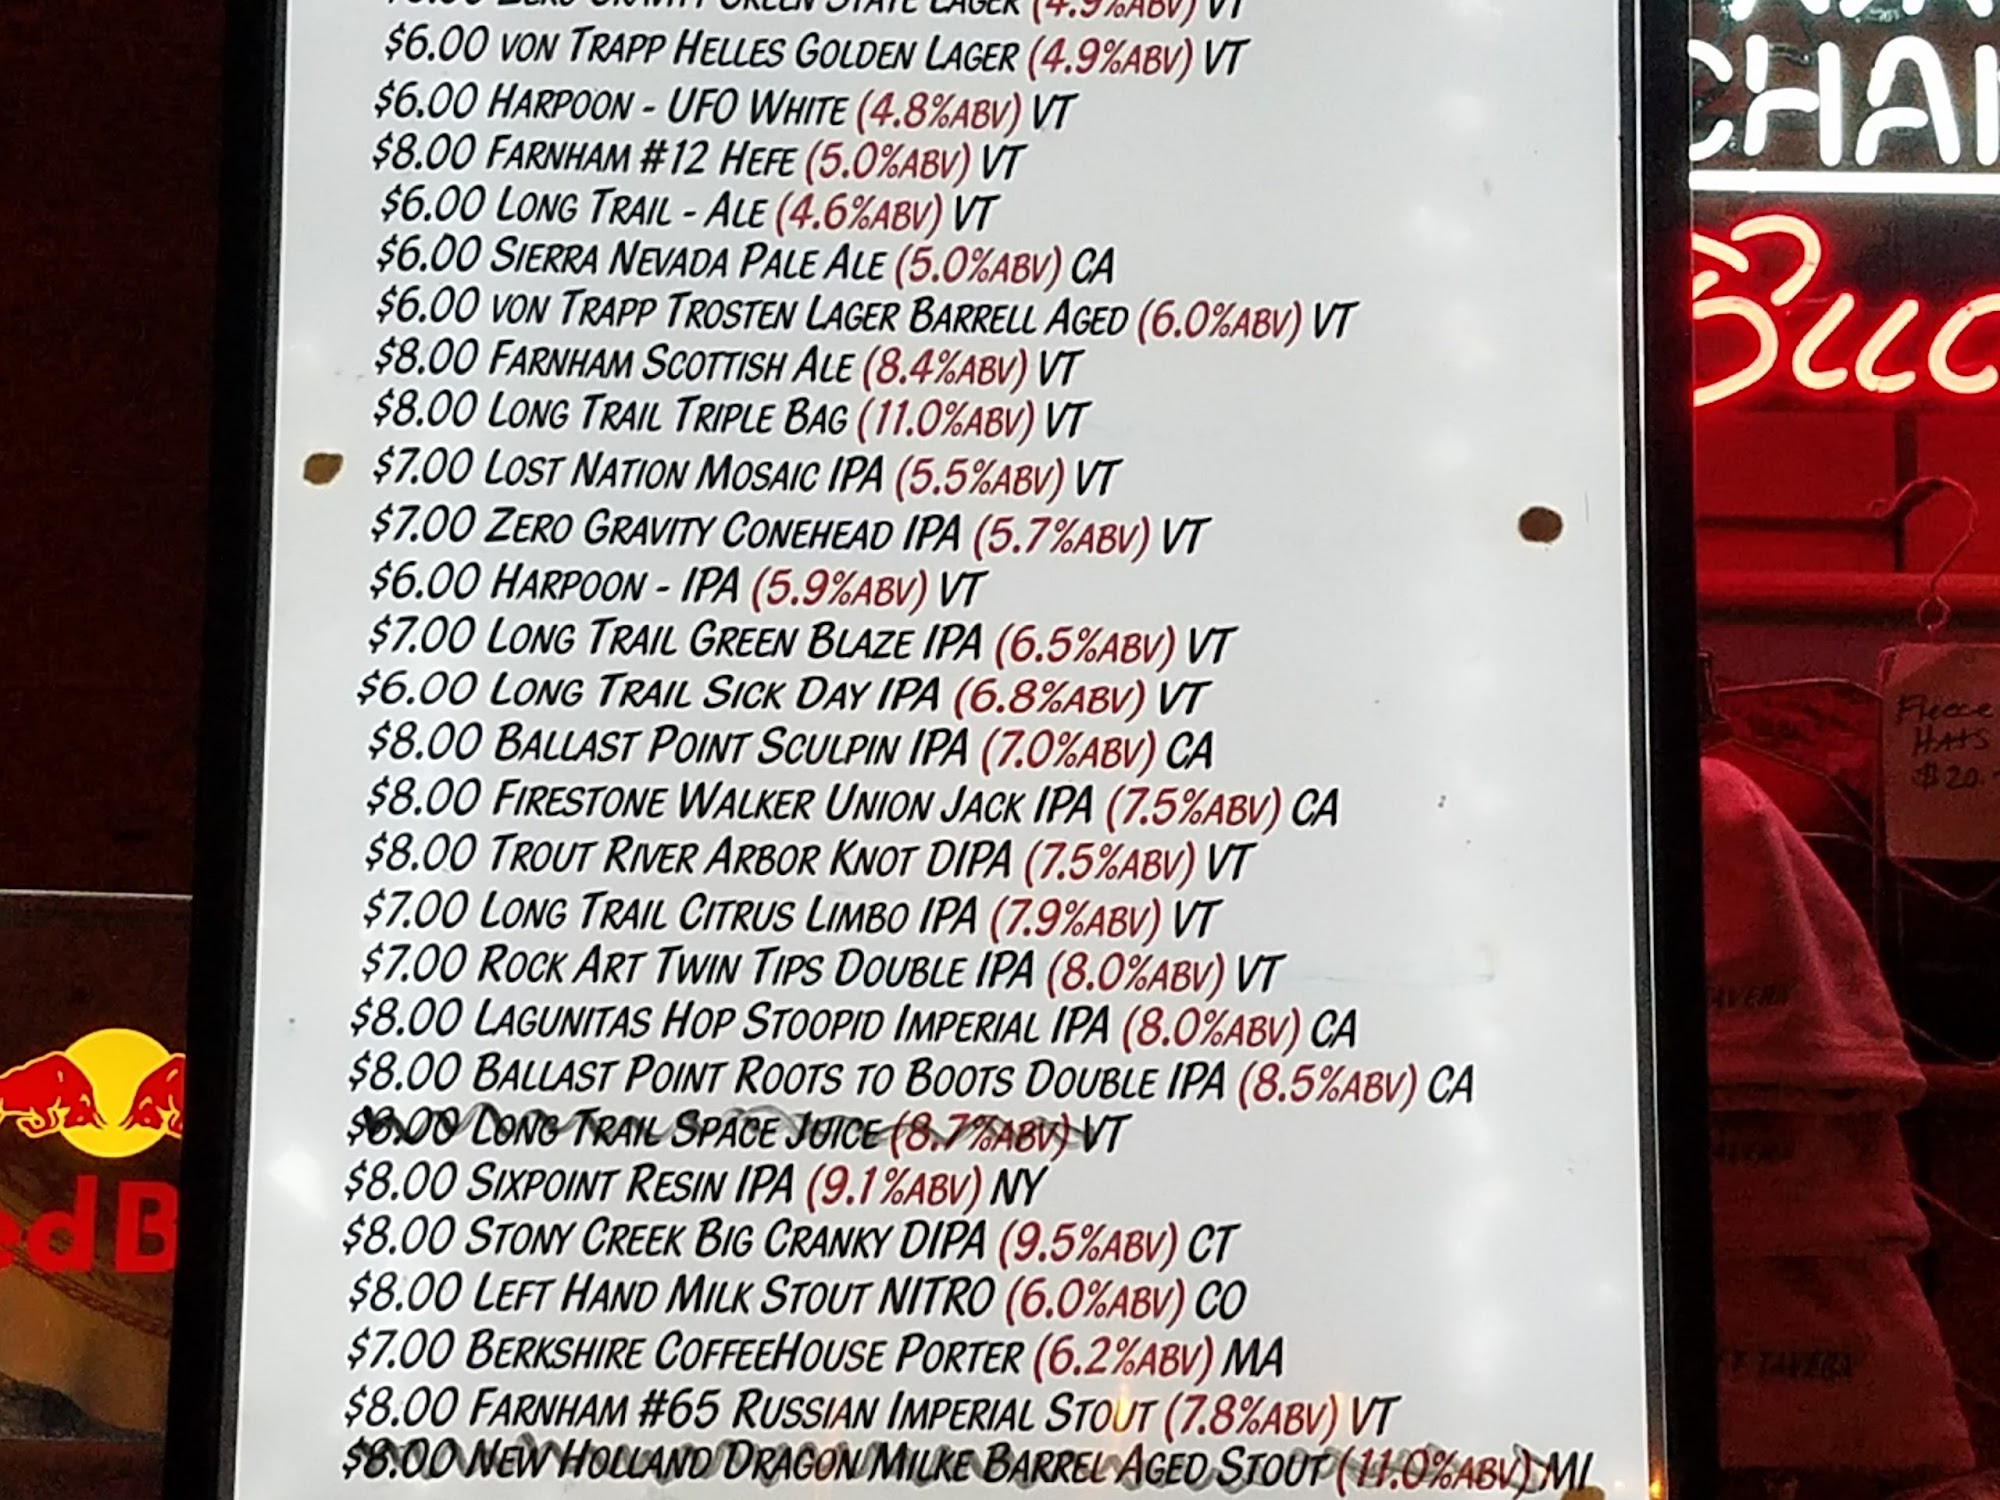 ZERO GRAVITY GREEN STATE LAGER (4.9%ABV) VT
$6.00 VON TRAPP HELLES GOLDEN LAGER (4.9%ABV) VT
$6.00 HARPOON - UFO WHITE (4.8%ABV) VT
$8.00 FARNHAM #12 HEFE (5.0%ABV) VT
$6.00 LONG TRAIL - ALE (4.6%ABV) VT
$6.00 SIERRA NEVADA PALE ALE (5.0%ABV) CA
$6.00 VON TRAPP TROSTEN LAGER BARRELL AGED (6.0%ABV) VT
$8.00 FARNHAM SCOTTISH ALE (8.4%ABV) VT
$8.00 LONG TRAIL TRIPLE BAG (11.0%ABV) VT
$7.00 LOST NATION MOSAIC IPA (5.5%ABV) VT
$7.00 ZERO GRAVITY CONEHEAD IPA (5.7%ABV) VT
$6.00 HARPOON - IPA (5.9%ABV) VT
$7.00 LONG TRAIL GREEN BLAZE IPA (6.5%ABV) VT
$6.00 LONG TRAIL SICK DAY IPA (6.8%ABV) VT
$8.00 BALLAST POINT SCULPIN IPA (7.0%ABV) CA
$8.00 FIRESTONE WALKER UNION JACK IPA (7.5%ABV) CA
$8.00 TROUT RIVER ARBOR KNOT DIPA (7.5%ABV) VT
$7.00 LONG TRAIL CITRUS LIMBO IPA (7.9%ABV) VT
$7.00 ROCK ART TWIN TIPS DOUBLE IPA (8.0%ABV) VT
$8.00 LAGUNITAS HOP STOOPID IMPERIAL IPA (8.0%ABV) CA
$8.00 BALLAST POINT ROOTS TO BOOTS DOUBLE IPA (8.5%ABV) CA
LONG TRAIL SPACE JUICE (8.7%ABV) VT
$8.00 SIXPOINT RESIN IPA (9.1%ABV) NY
$8.00 STONY CREEK BIG CRANKY DIPA (9.5%ABV) CT
$8.00 LEFT HAND MILK STOUT NITRO (6.0%ABV) CO
$7.00 BERKSHIRE COFFEEHOUSE PORTER (6.2%ABV) MA
$8.00 FARNHAM #65 RUSSIAN IMPERIAL STOUT (7.8%ABV) VT
$8.00 NEW HOLLAND DRAGON MILKE BARREL AGED STOUT (11.0%ABV) MI
CHA
Fleece
HATS
$20
ed B
TAVERN